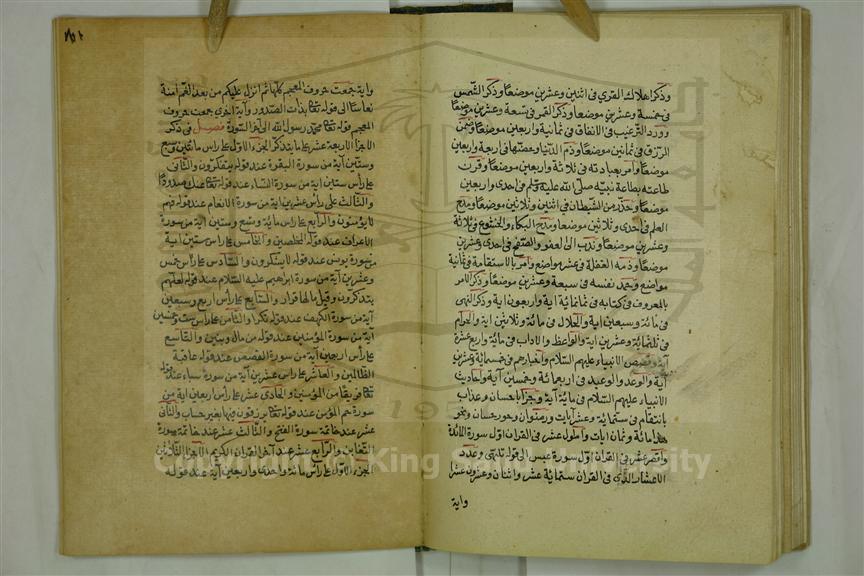 وذكر اهلاك القرى فى اثنين وعشرين موضعا وذكر الشمس
فى خمسة وعشرين موضعا وذكر القمر فى تسعة وعشرين موضعا
وورد الترغيب فى الانفاق فى ثمانية واربعين موضعا وضمن
الرزق فى ثمانين موضعا وذم الدنيا وبغضها فى اربعة واربعين
موضعا وامر بعبادته فى ثلاثة واربعين موضعا وقرن
طاعته بطاعة نبيه صلى الله عليه وسلم فى احدى واربعين
موضعا وحذر من الشيطان فى اثنين وثلاثين موضعا ومدح
العلم فى احدى وثلاثين موضعا ومدح البكاء والخشوع فى ثلاثة
وعشرين موضعا وندب الى العفو والصفح فى احدى وعشرين
موضعا وذمه الغفلة فى عشر مواضع وامر بالاستقامة فى ثمانية
مواضع وحمد نفسه فى سبعة وعشرين موضعا وذكر الامر
بالمعروف فى كتابه فى ثمانمائة اية واربعون اية وذكر النهى
فى مائة وسبعين اية والحلال فى مائة وثلاثين اية والحرام
فى ثلثمائة وعشرين اية والمواعظ والاداب فى مائة واربع عشرة
آية وقصص الانبياء عليهم السلام واخبارهم فى خمسمائة وعشرين
آية والوعد والوعيد فى اربعمائة وخمسين آية واحاديث
الانبياء عليهم السلام فى مائة آية وجزاء باحسان وعذاب
بانتقام فى ستمائة وعشر آيات ورضوان وحور حسان ونحو
هذا مائة وثمان ايات واطول عشر فى القران اول سورة المائدة
واقصر عشر فى القران اول سورة عبس الى قوله تلهى وعدد
الاعشار الذى فى القران ستمائة عشر واثنان وعشرون عشرا
واية
واية جمعت حروف المعجم كلها ثم انزل عليكم من بعد الغم امنة
نعاسا الى قوله تعا بذات الصدور وآية اخرى جمعت حروف
المعجم قوله تعا محمد رسول الله الى آخر السورة فصل فى ذكر
الاجزاء الاربعة عشر ما بتدكر الجزء الاول على راس مائتين وتسع
وستين آية من سورة البقرة عند قوله يتفكرون والثانى
على راس ستين اية من سورة النساء عند قوله تعا عنك صدودا
والثالث على راس عشرين اية من سورة الانعام عند قوله فهم
لا يؤمنون والرابع على راس مائة وتسع وستين آية من سورة
الاعراف عند قوله المخلصين والخامس على راس ستين آية
من سورة يونس عند قوله لا يشكرون والسادس على راس خمس
وعشرين آية من سورة ابراهيم عليه السلام عند قوله لعلهم
يتذكرون وقيل مالها قرار والسابع على راس اربع وسبعين
آية من سورة الكهف عند قوله نكرا والثامن على راس ست وخمسين
آية من سورة المؤمنين عند قوله من مال وبنين والتاسع
على راس اربعين آية من سورة القصص عند قوله عاقبة
الظالمين والعاشر على راس عشرين آية من سورة سباء عند قوله
تعا فريقا من المؤمنين والحادى عشر على راس اربعين اية من
سورة حم المؤمن عند قوله تعا يرزقون فيها بغير حساب والثانى
عشر عند خاتمة سورة الفتح والثالث عشر عند خاتمة سورة
التغابن والرابع عشر عند آخر القران الكريم الاجزاء الثلاثين
الجزء الاول على راس مائة واحدى واربعين آية عند قوله
1957
King Saud University